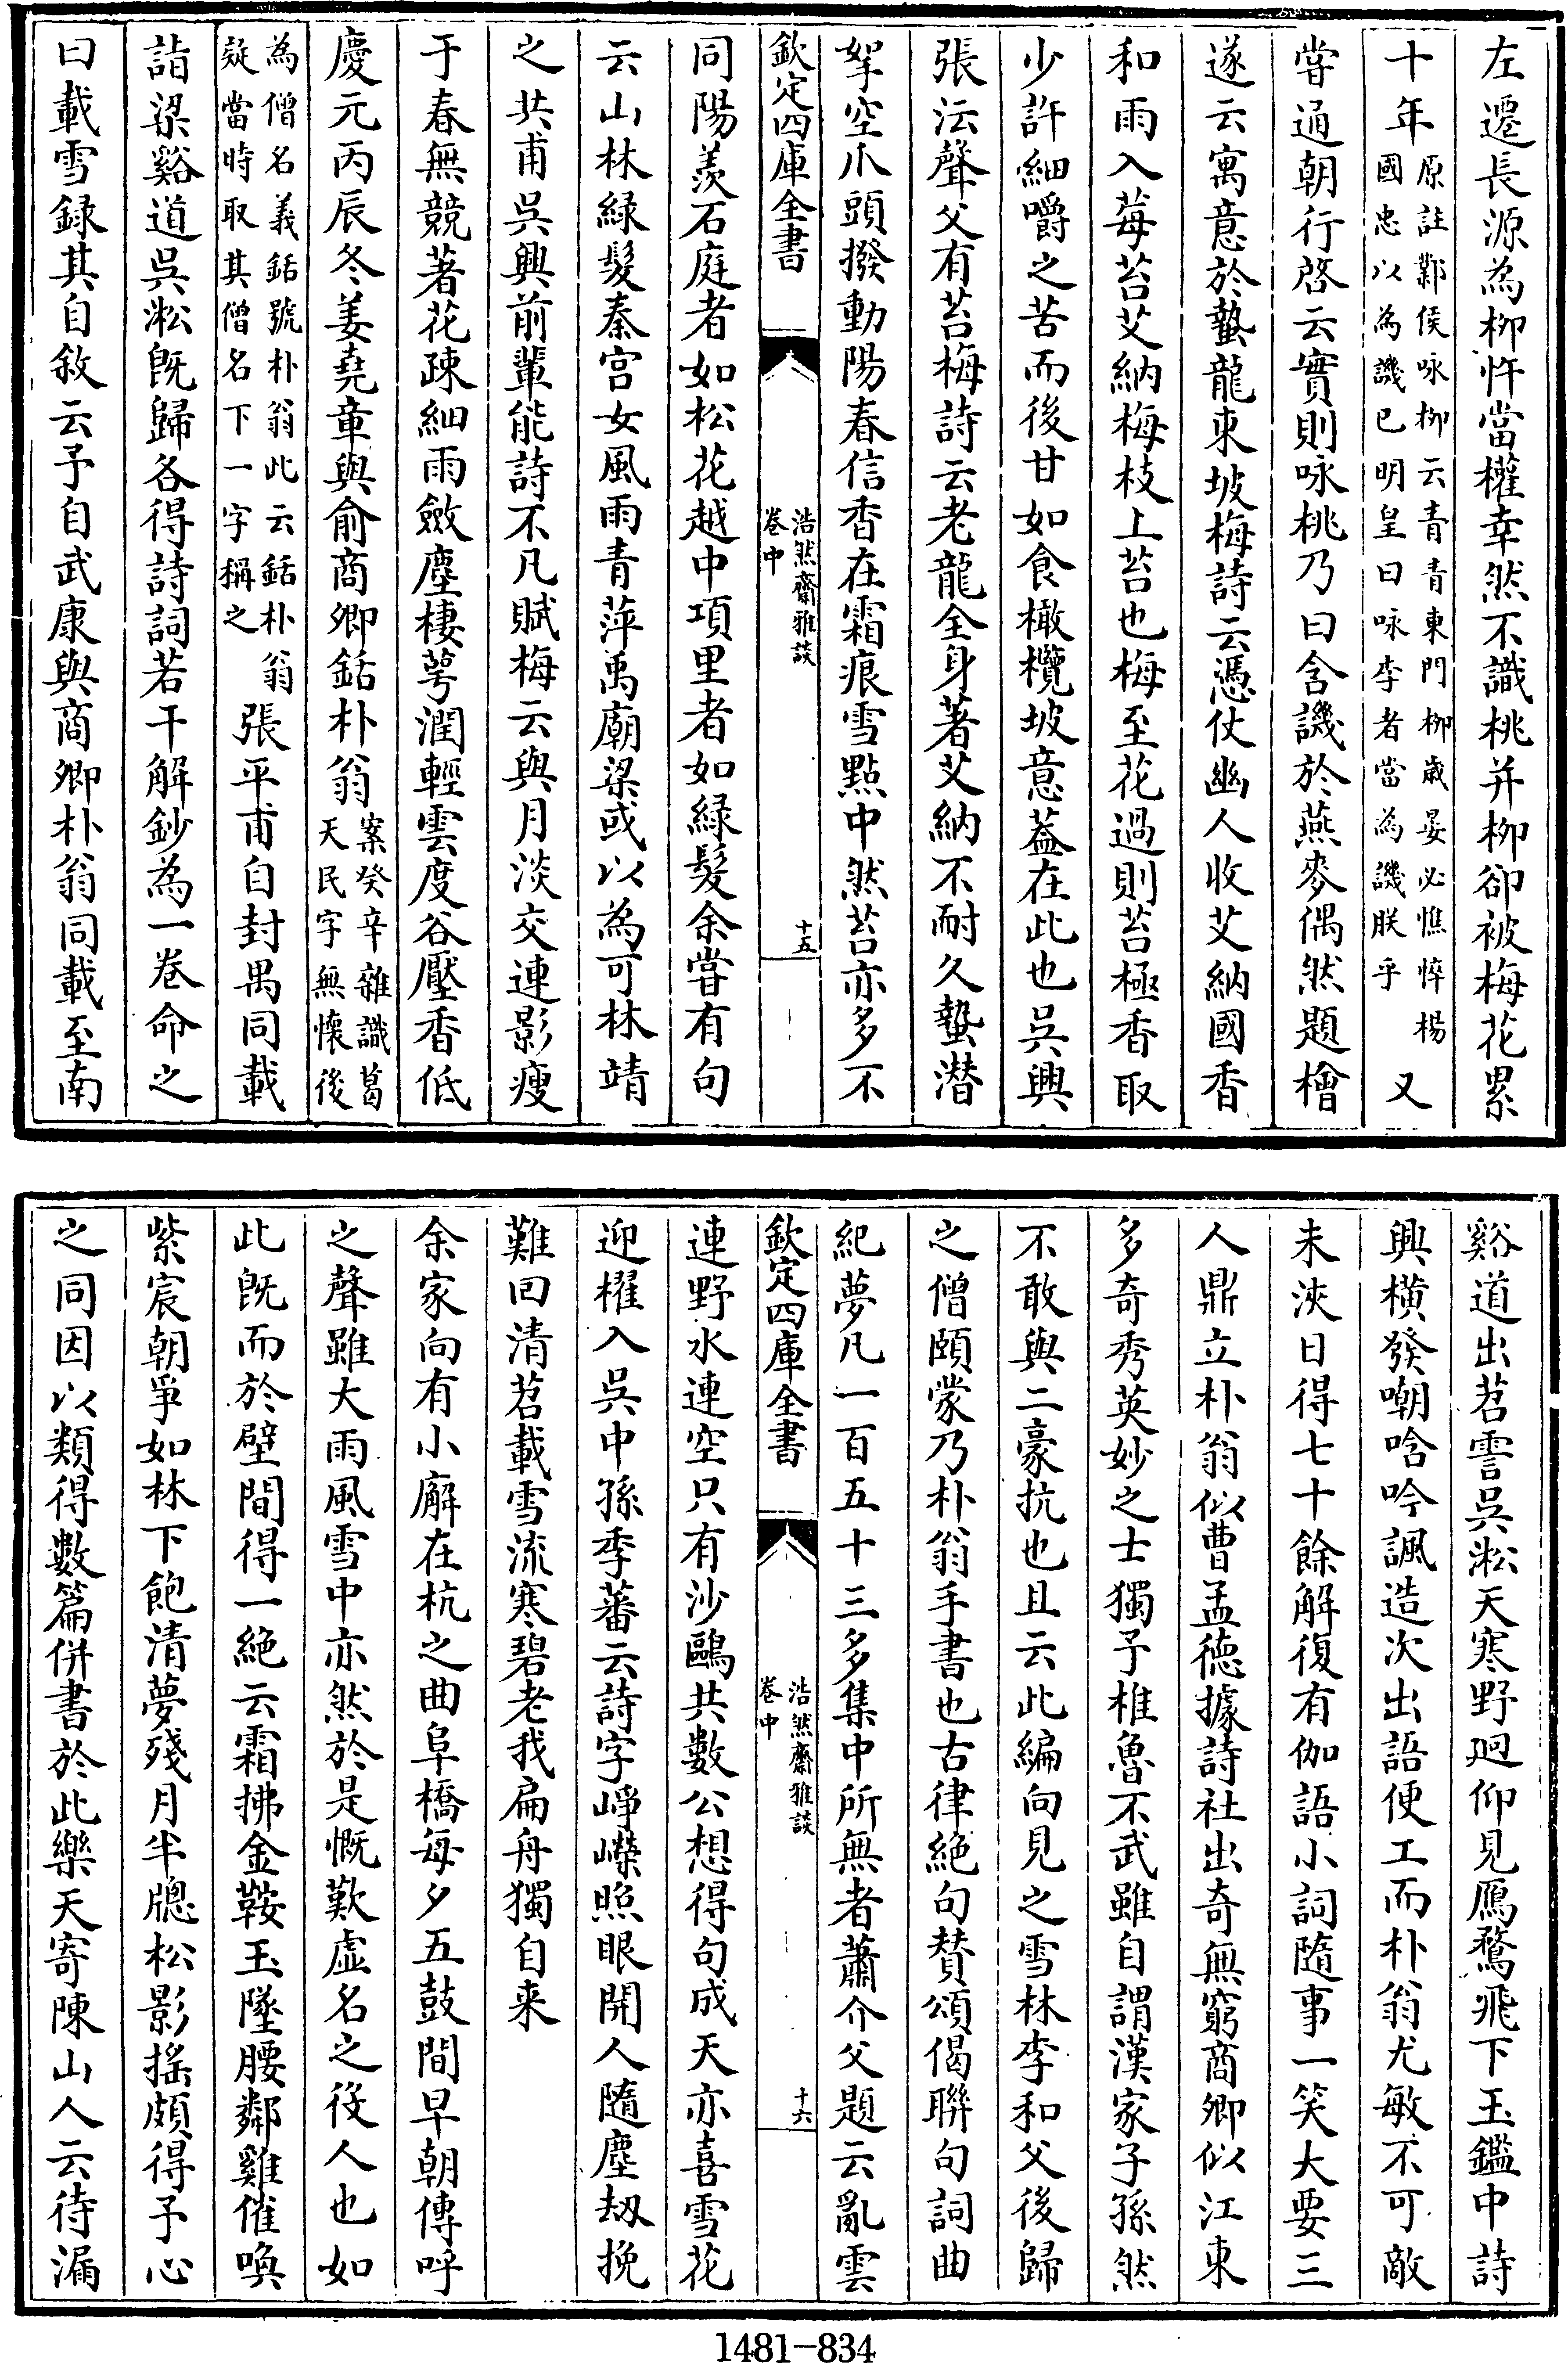 左遷長源為柳忤當權幸然不識桃并柳卻被梅花累
十年原註鄴侯咏柳云青青東門柳歲晏必憔悴楊國忠以為譏已明皇曰咏李者當為譏朕乎又
嘗通朝行啓云實則咏桃乃曰含譏於燕麥偶然題檜
遂云寓意於蟄龍東坡梅詩云憑仗幽人收艾納國香
和雨入莓苔艾納梅枝上苔也梅至花過則苔極香取
少許細嚼之苦而後甘如食橄欖坡意蓋在此也吳興
張沄聲父有苔梅詩云老龍全身著艾納不耐久蟄潜
拏空爪頭撥動陽春信香在霜痕雪點中然苔亦多不
欽定四庫全書
浩然齋雅談
卷中
十五
同陽羨石庭者如松花越中項里者如緑髮余嘗有句
云山林緑髮秦宫女風雨青萍禹廟梁或以為可林靖
之共甫吳興前輩能詩不凡賦梅云與月淡交連影瘦
于春無競著花疎細雨斂塵棲萼潤輕雲度谷壓香低
慶元丙辰冬姜堯章與俞商卿銛朴翁案癸辛雜識葛天民字無懷後
為僧名義銛號朴翁此云銛朴翁疑當時取其僧名下一字稱之張平甫自封禺同載
詣梁谿道吳淞既歸各得詩詞若干解鈔為一卷命之
曰載雪録其自敘云予自武康與商卿朴翁同載至南
谿道出苕霅吳淞天寒野迥仰見鴈鶩飛下玉鑑中詩
興橫發嘲唅吟諷造次出語便工而朴翁尤敏不可敵
未浹日得七十餘解復有伽語小詞隨事一笑大要三
人鼎立朴翁似曹孟德據詩社出奇無窮商卿似江東
多奇秀英妙之士獨予椎魯不武雖自謂漢家子孫然
不敢與二豪抗也且云此編向見之雪林李和父後歸
之僧頤蒙乃朴翁手書也古律絶句賛頌偈聯句詞曲
紀夢凡一百五十三多集中所無者蕭介父題云亂雲
欽定四庫全書
浩然齋雅談
卷中
十六
連野水連空只有沙鷗共數公想得句成天亦喜雪花
迎櫂入吳中孫季蕃云詩字崢嶸照眼開人隨塵刼挽
難回清苕載雪流寒碧老我扁舟獨自来
余家向有小廨在杭之曲阜橋每夕五鼓間早朝傳呼
之聲雖大雨風雪中亦然於是慨歎虛名之役人也如
此既而於壁間得一絶云霜拂金鞍玉墜腰鄰雞催喚
紫宸朝爭如林下飽清夢殘月半牕松影摇頗得予心
之同因以類得數篇併書於此樂天寄陳山人云待漏
1481-834